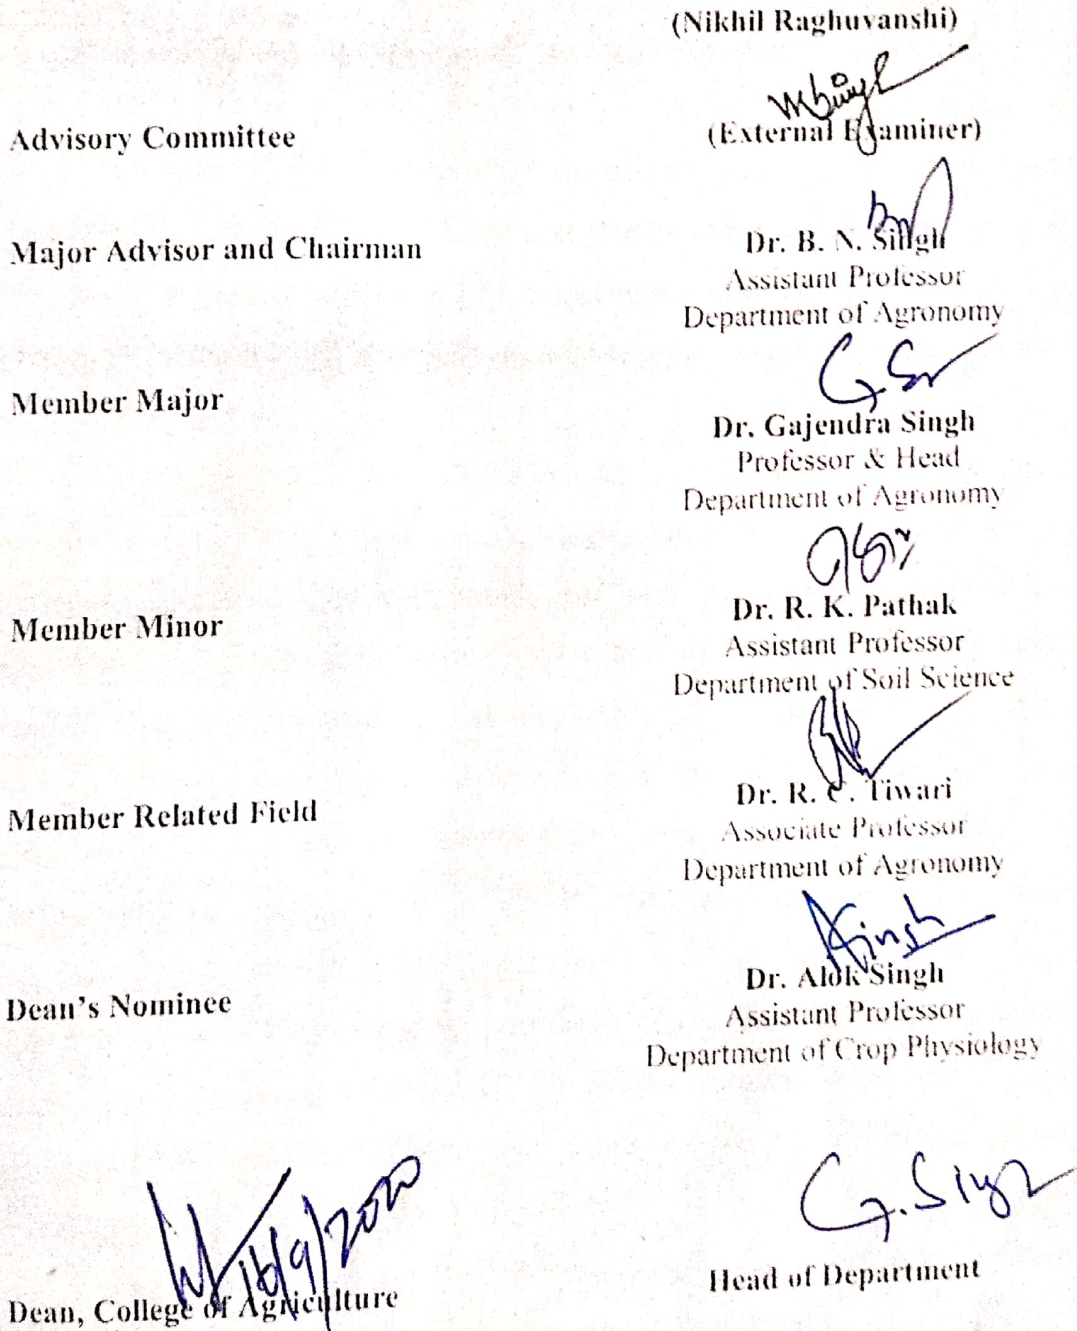 (Nikhil Raghuvanshi)
Advisory Committee
(External Examiner)
Major Advisor and Chairman
Dr. B. N. Singh
Assistant Professor
Department of Agronomy
G. S
Member Major
Dr. Gajendra Singh
Professor & Head
Department of Agronomy
Member Minor
Dr. R. K. Pathak
Assistant Professor
Department of Soil Science
Member Related Field
Dr. R. C. Tiwari
Associate Professor
Department of Agronomy
ASingh
Dean's Nominee
Dr. Alok Singh
Assistant Professor
Department of Crop Physiology
16/9/2020
G. Singh
Dean, College of Agriculture
Head of Department